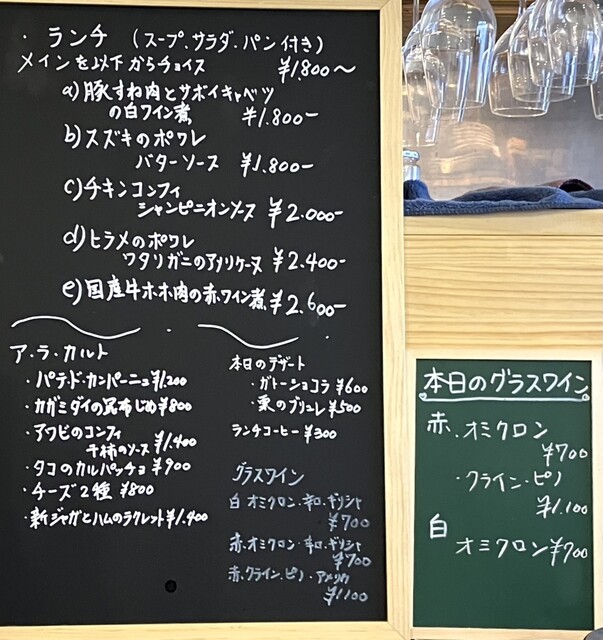 ・ランチ (スープ、サラダ・パン付き)
メインを以下からチョイス ¥1.800〜
a)豚すね肉とサボイキャベツ
の白ワイン煮 ¥1.800-
b)スズキのポワレ
バターソース ¥1.800-
c)チキンコンフィ
シャンピニオンソース ¥2.000-
d)ヒラメのポワレ
ワタリガニのアメリケーヌ ¥2.400-
e)国産牛ホホ肉の赤ワイン煮 ¥2.600-
ア・ラ・カルト
・パテ・ド・カンパーニュ ¥1.200
・カガミダイの昆布じめ ¥800
・アワビのコンフィ
干柿のソース ¥1.400
・タコのカルパッチョ ¥900
・チーズ2種 ¥800
・新ジャガとハムのラクレット ¥1.400
本日のデザート
・ガトーショコラ ¥600
・栗のブリュレ ¥500
ランチコーヒー ¥300
グラスワイン
白 オミクロン・辛口・ギリシャ
¥700
赤.オミクロン・辛口.ギリシャ
¥700
赤.クライン.ピノ・アメリカ
¥1100
本日のグラスワイン
赤.オミクロン
¥700
・クライン・ピノ
¥1.100
白
オミクロン ¥700